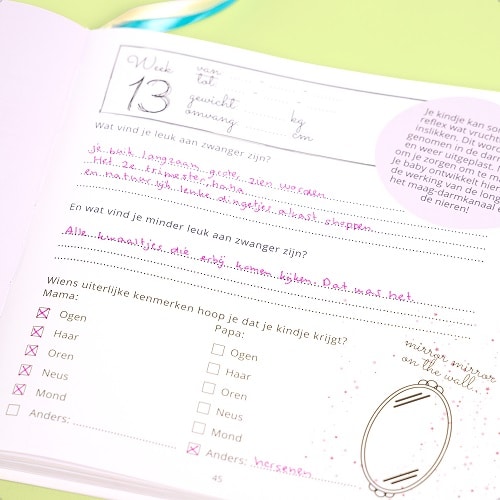 Week
13
van
tot
gewicht kg
omvang cm
Wat vind je leuk aan zwanger zijn?
je buik langzaam groter zien worden
Het 2e trimester, haha
en natuurlijk leuke dingetjes alvast shoppen
En wat vind je minder leuk aan zwanger zijn?
Alle kwaaltjes die erbij komen kijken. Dat was het
Wiens uiterlijke kenmerken hoop je dat je kindje krijgt?
Mama:
Ogen
Haar
Oren
Neus
Mond
Anders:
Papa:
Ogen
Haar
Oren
Neus
Mond
Anders: hersenen
Je kindje kan
reflex wat vruch
inslikken. Dit wor
genomen in de dar
en weer uitgeplast.
om je zorgen om te m
Je baby ontwikkelt hie
de werking van de long
het maag-darmkanaal
de nieren!
mirror mirror
on the wall...
45